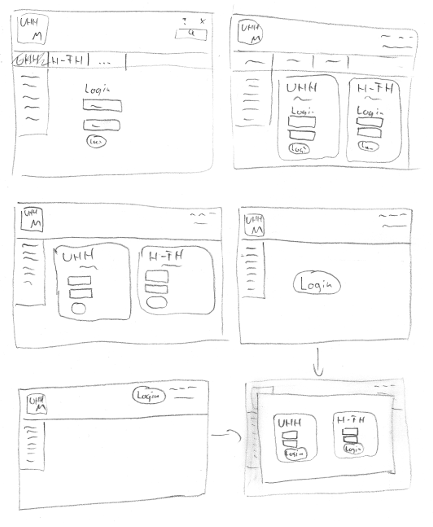 UHH
M
? X
Q
UHH H-TH ...
Login
Login
UHH
M
UHH H-TH
Login Login
Login Login
UHH
M
UHH H-TH
UHH
M
Login
UHH
M
Login
UHH H-TH
Login Login